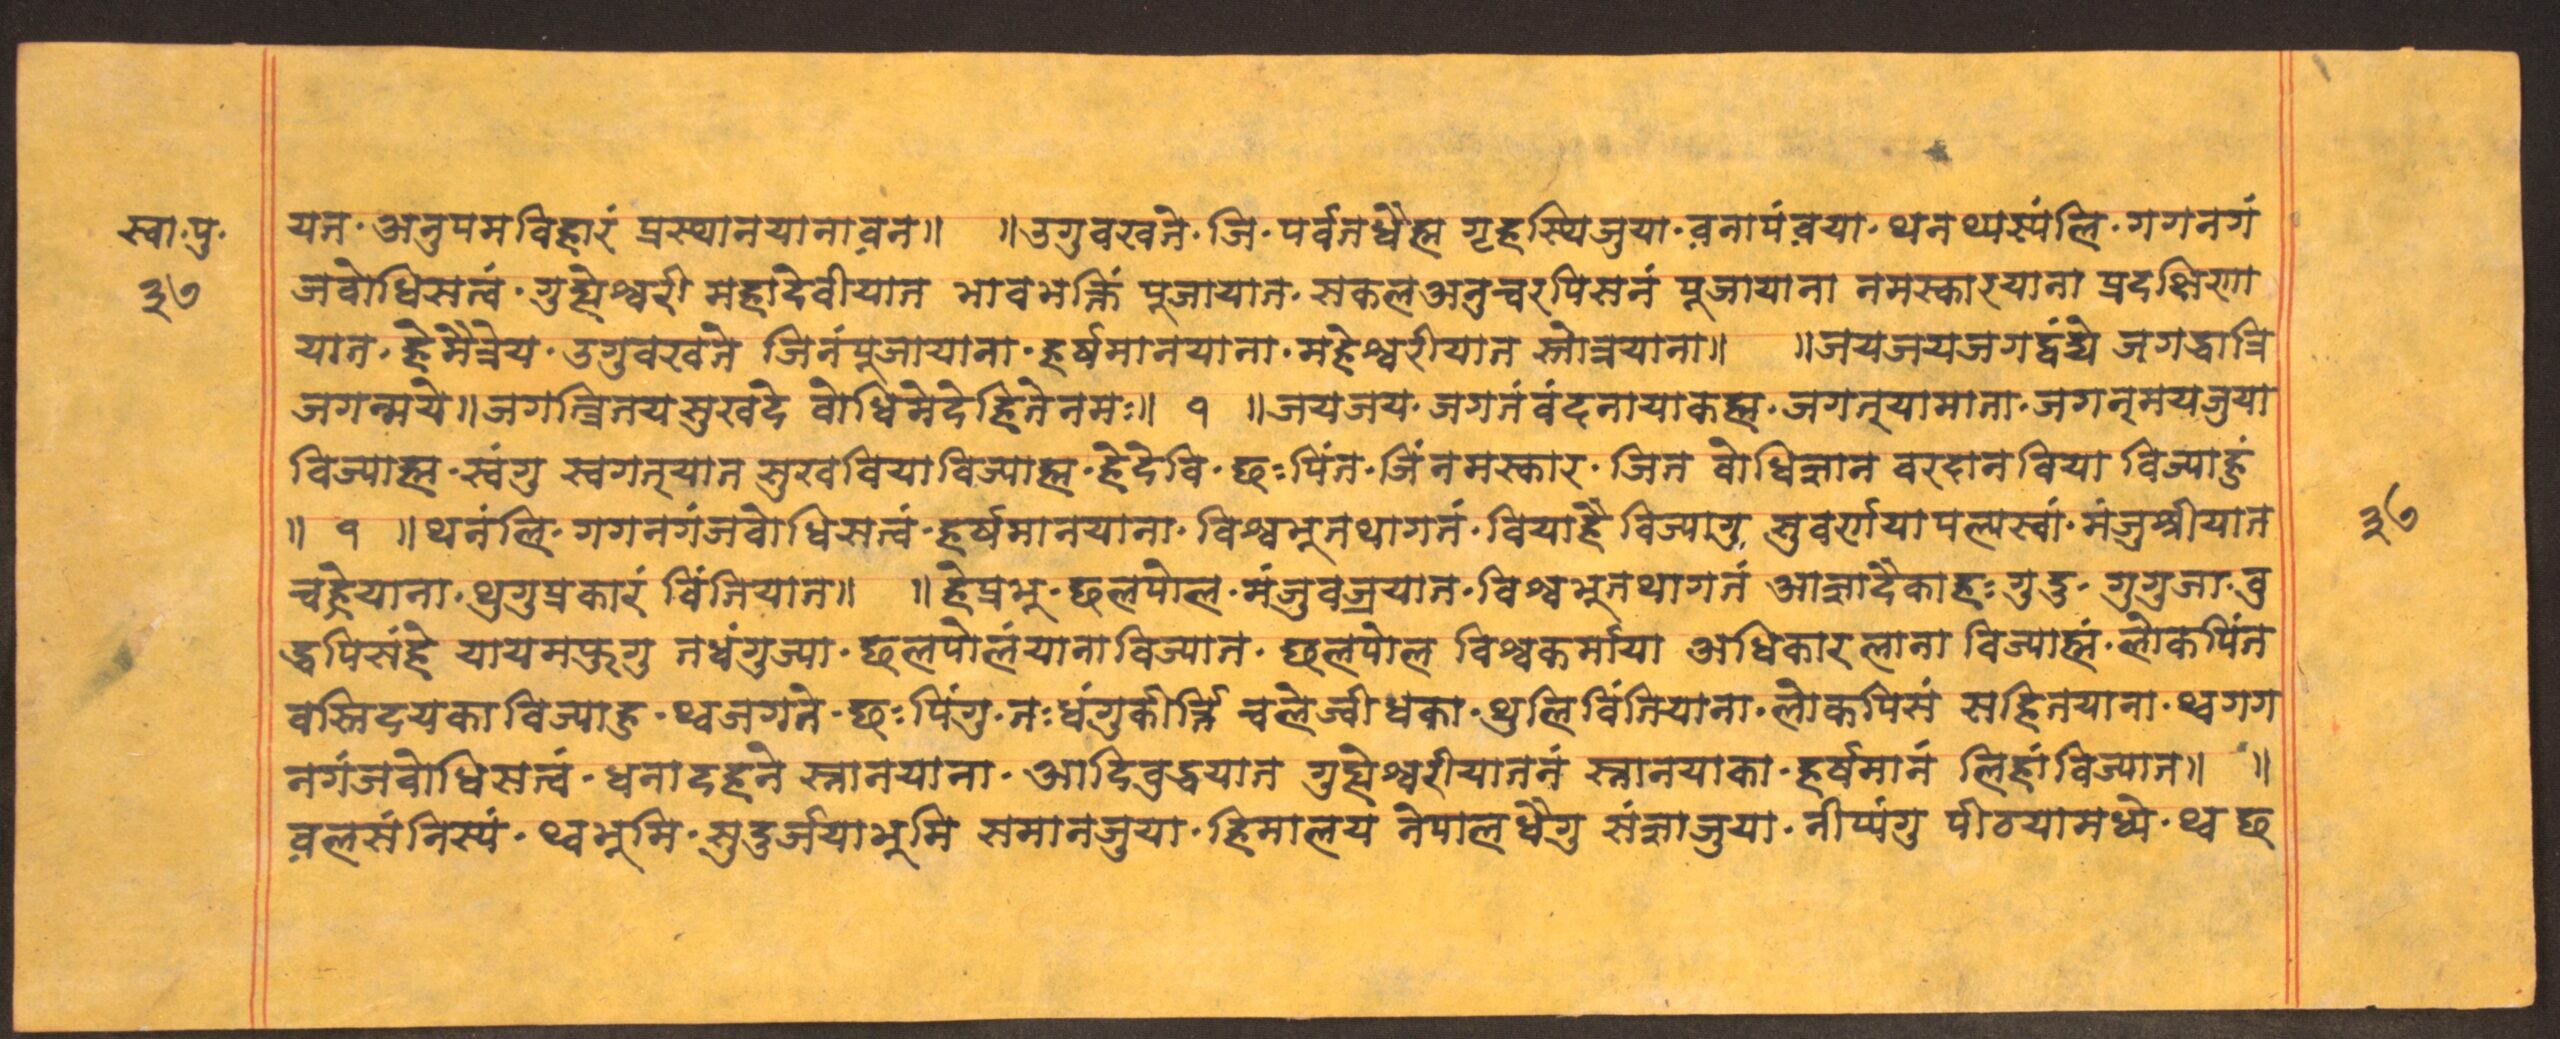 स्वा.पु.
३७
यत. अनुपमविहारं प्रस्थानयाना व़न॥ ॥उगुवखते. जि. पर्वतधैह्म गृहस्थिजुया. व़नापं व़या. थनथ्यस्यंलि. गगनगं
जवोधिसत्वं. गुह्येश्वरी महादेवीयात भावभक्तिं पूजायात. सकलअनुचरपिसनं पूजायाना नमस्कारयाना प्रदक्षिणा
यात. हेमैत्रेय. उगुवखते जिनंपूजायाना. हर्षमानयाना. महेश्वरीयात स्तोत्रयाना॥ ॥जयजयजगद्वंद्ये जगद्धात्रि
जगन्मये॥जगत्त्रितयसुखदे वोधिमेदेहितेनमः॥ १ ॥जयजय. जगतंवंदनायाकह्म. जगत्यामाता. जगत्मयजुया
विज्याह्म. स्वंगु स्वगत्यात सुखवियाविज्याह्म. हेदेवि. छःपिंत. जिंनमस्कार. जित वोधिज्ञान वरदानविया विज्याहुं
॥ १ ॥थनंलि. गगनगंजवोधिसत्वं. हर्षमानयाना. विश्वभूतथागतं. वियाहै विज्यागु सुवर्णयापल्यस्वां. मंजुश्रीयात
चहेयाना. थुगुप्रकारं विंतियात॥ ॥हेप्रभु. छलपोल. मंजुवज्रयात. विश्वभूतथागतं आज्ञादैकाहः गुदु. गुगुजा. वु
द्धपिसंहे यायमफुगु तधंगुज्या. छलपोलंयानाविज्यात. छलपोल विश्वकर्माया अधिकारलाना विज्याह्मं. लोकपिंत
वस्तिदयकाविज्याहु. थ्वजगते. छःपिंगु. तःधंगुकीर्त्ति चलेज्वीधका. थुलिविंतियाना. लोकपिसं सहितयाना. थ्वगग
नगंजवोधिसत्वं. धनादहने स्नानयाना. आदिवुद्धयात गुह्येश्वरीयाततं स्नानयाका. हर्षमानं लिहांविज्यात॥ ॥
व़लसंनिस्यं. थ्वभूमि. सुदुर्जयाभूमि समानजुया. हिमालय नेपालधैगु संज्ञाजुया. नीप्यंगु पीठयामध्ये. थ्व छ
३७